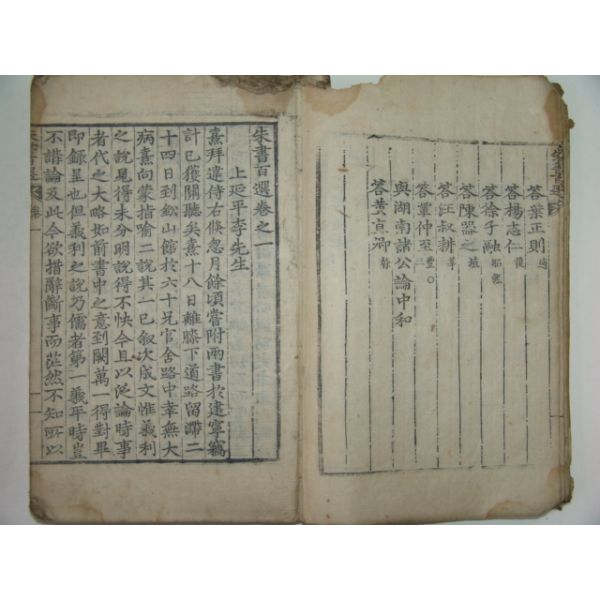 答葉正則 適
答楊志仁 復
答徐子融 昭然
答陳器之 埴
答汪叔耕 莘
答輩仲至 豊
與湖南諸公論中和
答黃直卿 榦
朱書百選卷之一
上延平李先生
熹拜違侍右倏忽月餘頃嘗附兩書於建寧竊
計已獲關聽矣熹十八日離膝下道路留滯二
十四日到鈆山館於六十兄官舍路中幸無大
病熹向蒙指喻二說其一已叙次成文惟義利
之說尾得未分明說得不快今且以泛論時事
者代之大略如前書中之意到闕萬一得對畢
即錄呈也但義利之說乃儒者第一義平時豈
不講論及此今欲措辭斷事而茫然不知所以